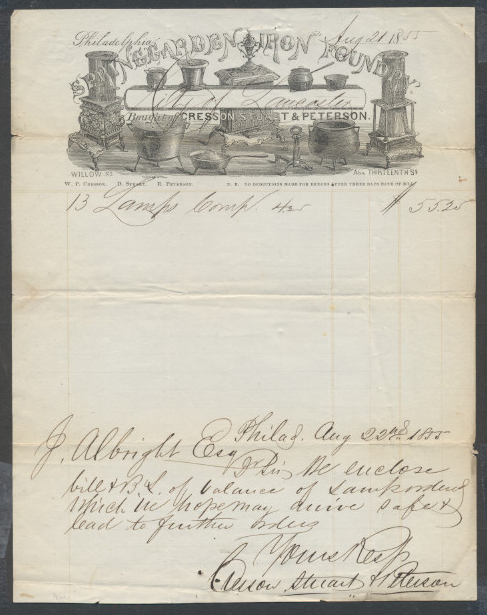 Philadelphia, Aug 21 1855
SPRING GARDEN IRON FOUNDRY.
City of Lancaster
Bought of CRESSON, STUART & PETERSON.
WILLOW ST.
Abv. THIRTEENTH St
W. P. Cresson. D. Stuart. R. Peterson. N. B. NO DEDUCTION MADE FOR ERRORS AFTER THREE DAYS DATE OF BILL
13 Lamps Comp. 425 $ 55.25
Philad. Aug 22nd 1855
J. Albright Esq
Dr Sir We enclose
bill & B.L. of balance of Lamps ordered
which we hope may arrive safe &
lead to further orders
Yours Resp
Cresson, Stuart & Peterson